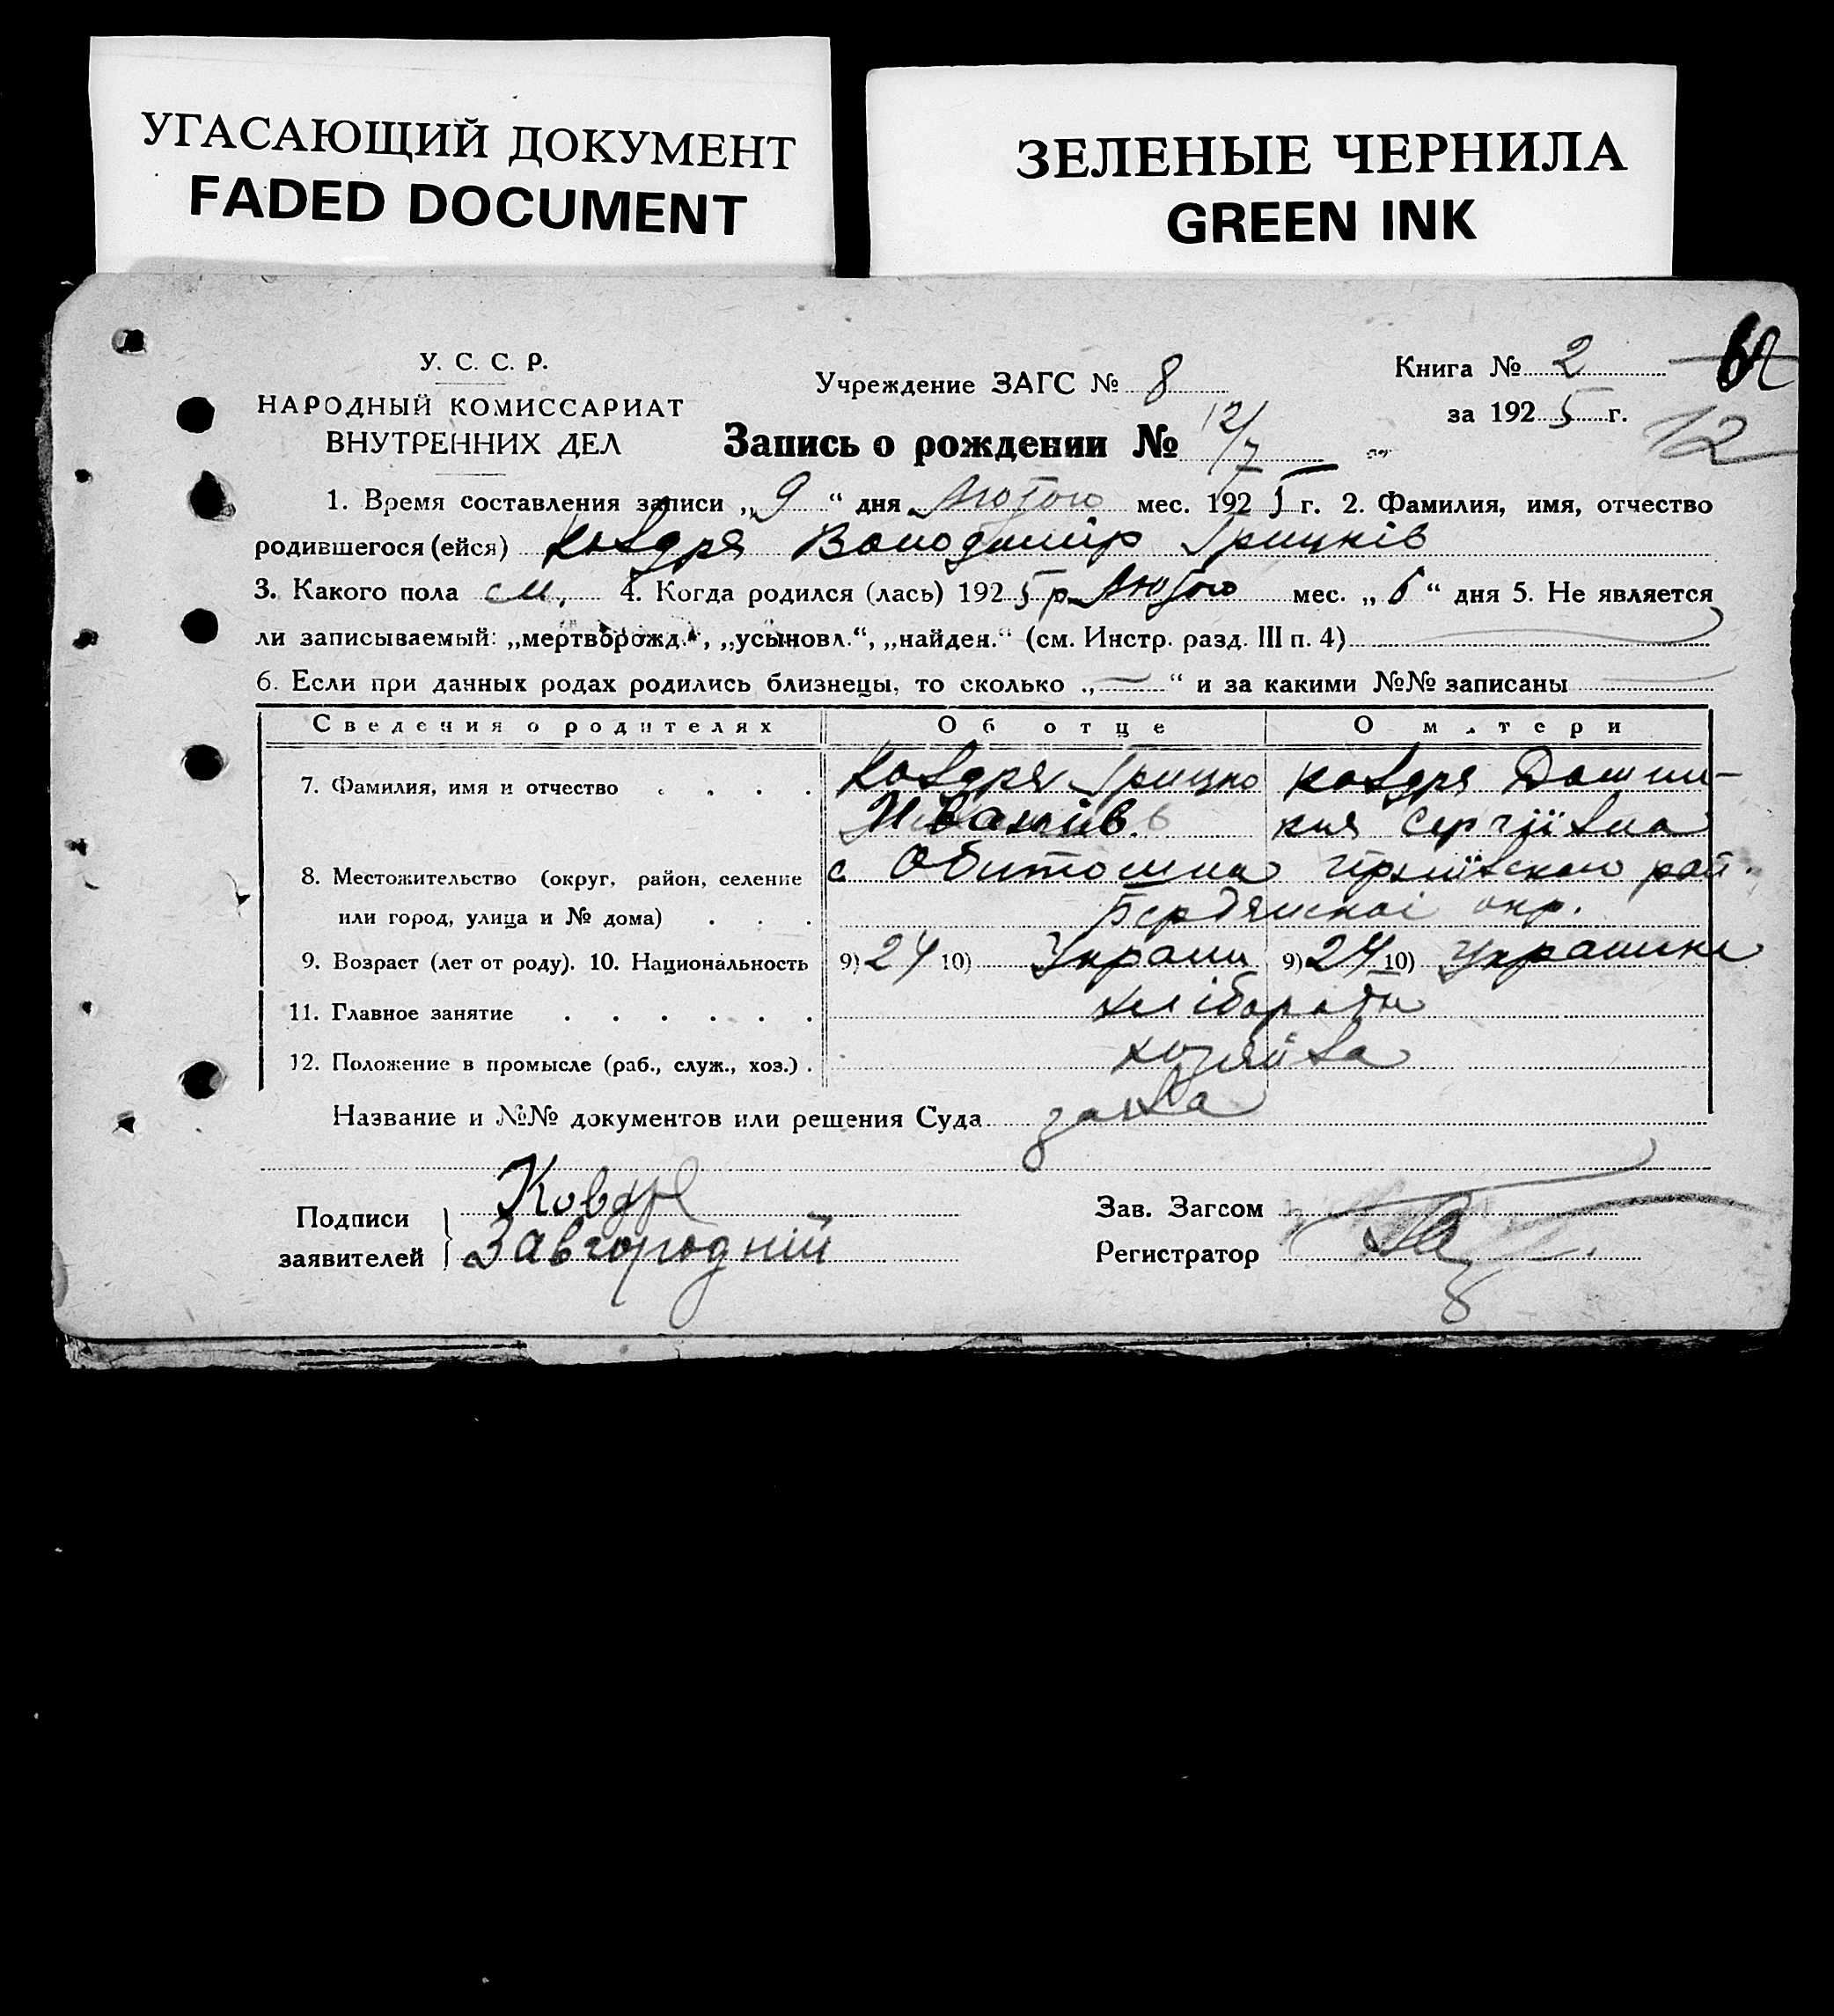 УГАСАЮЩИЙ ДОКУМЕНТ
FADED DOCUMENT
ЗЕЛЕНЫЕ ЧЕРНИЛА
GREEN INK
У. С. С. Р.
НАРОДНЫЙ КОМИССАРИАТ
ВНУТРЕННИХ ДЕЛ
Учреждение ЗАГС № 8
Книга № 2
за 1925 г.
12
Запись о рождении № 12/7
1. Время составления записи „9“ дня Лютого мес. 1925 г. 2. Фамилия, имя, отчество
родившегося (ейся) Ковдря Володимір Грицків
3. Какого пола м. 4. Когда родился (лась) 1925 р. Лютого мес. „6“ дня 5. Не является
ли записываемый: „мертворожд.“, „усыновл.“, „найден.“ (см. Инстр. разд. III п. 4)
6. Если при данных родах родились близнецы, то сколько „—“ и за какими №№ записаны —
Сведения о родителях Об отце О матери
7. Фамилия, имя и отчество . . . . Ковдря Грицко Ковдря Домни-
Иванів. кия Сергіївна
8. Местожительство (округ, район, селение с Обиточна рай.
или город, улица и № дома) . . . Бердянскоі окр.
9. Возраст (лет от роду). 10. Национальность 9) 24 10) Украин 9) 24 10) Украинка
11. Главное занятие . . . . . . хлібороби
12. Положение в промысле (раб., служ., хоз.) . хозяйва
Название и №№ документов или решения Суда заява
Подписи заявителей
Ковдря
Завгородній
Зав. Загсом
Регистратор